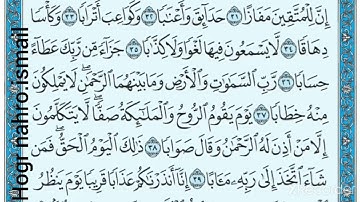 إِنَّ لِلْمُتَّقِينَ مَفَازًا ٣١ حَدَآئِقَ وَأَعْنَٰبًا ٣٢ وَكَوَاعِبَ أَتْرَابًا ٣٣ وَكَأْسًا
دِهَاقًا ٣٤ لَّا يَسْمَعُونَ فِيهَا لَغْوًا وَلَا كِذَّٰبًا ٣٥ جَزَآءً مِّن رَّبِّكَ عَطَآءً
حِسَابًا ٣٦ رَّبِّ ٱلسَّمَٰوَٰتِ وَٱلْأَرْضِ وَمَا بَيْنَهُمَا ٱلرَّحْمَٰنِ ۖ لَا يَمْلِكُونَ
مِنْهُ خِطَابًا ٣٧ يَوْمَ يَقُومُ ٱلرُّوحُ وَٱلْمَلَٰٓئِكَةُ صَفًّا ۖ لَّا يَتَكَلَّمُونَ
إِلَّا مَنْ أَذِنَ لَهُ ٱلرَّحْمَٰنُ وَقَالَ صَوَابًا ٣٨ ذَٰلِكَ ٱلْيَوْمُ ٱلْحَقُّ ۖ فَمَن
شَآءَ ٱتَّخَذَ إِلَىٰ رَبِّهِۦ مَـَٔابًا ٣٩ إِنَّآ أَنذَرْنَٰكُمْ عَذَابًا قَرِيبًا يَوْمَ يَنظُرُ
Hogr nahro.ismail